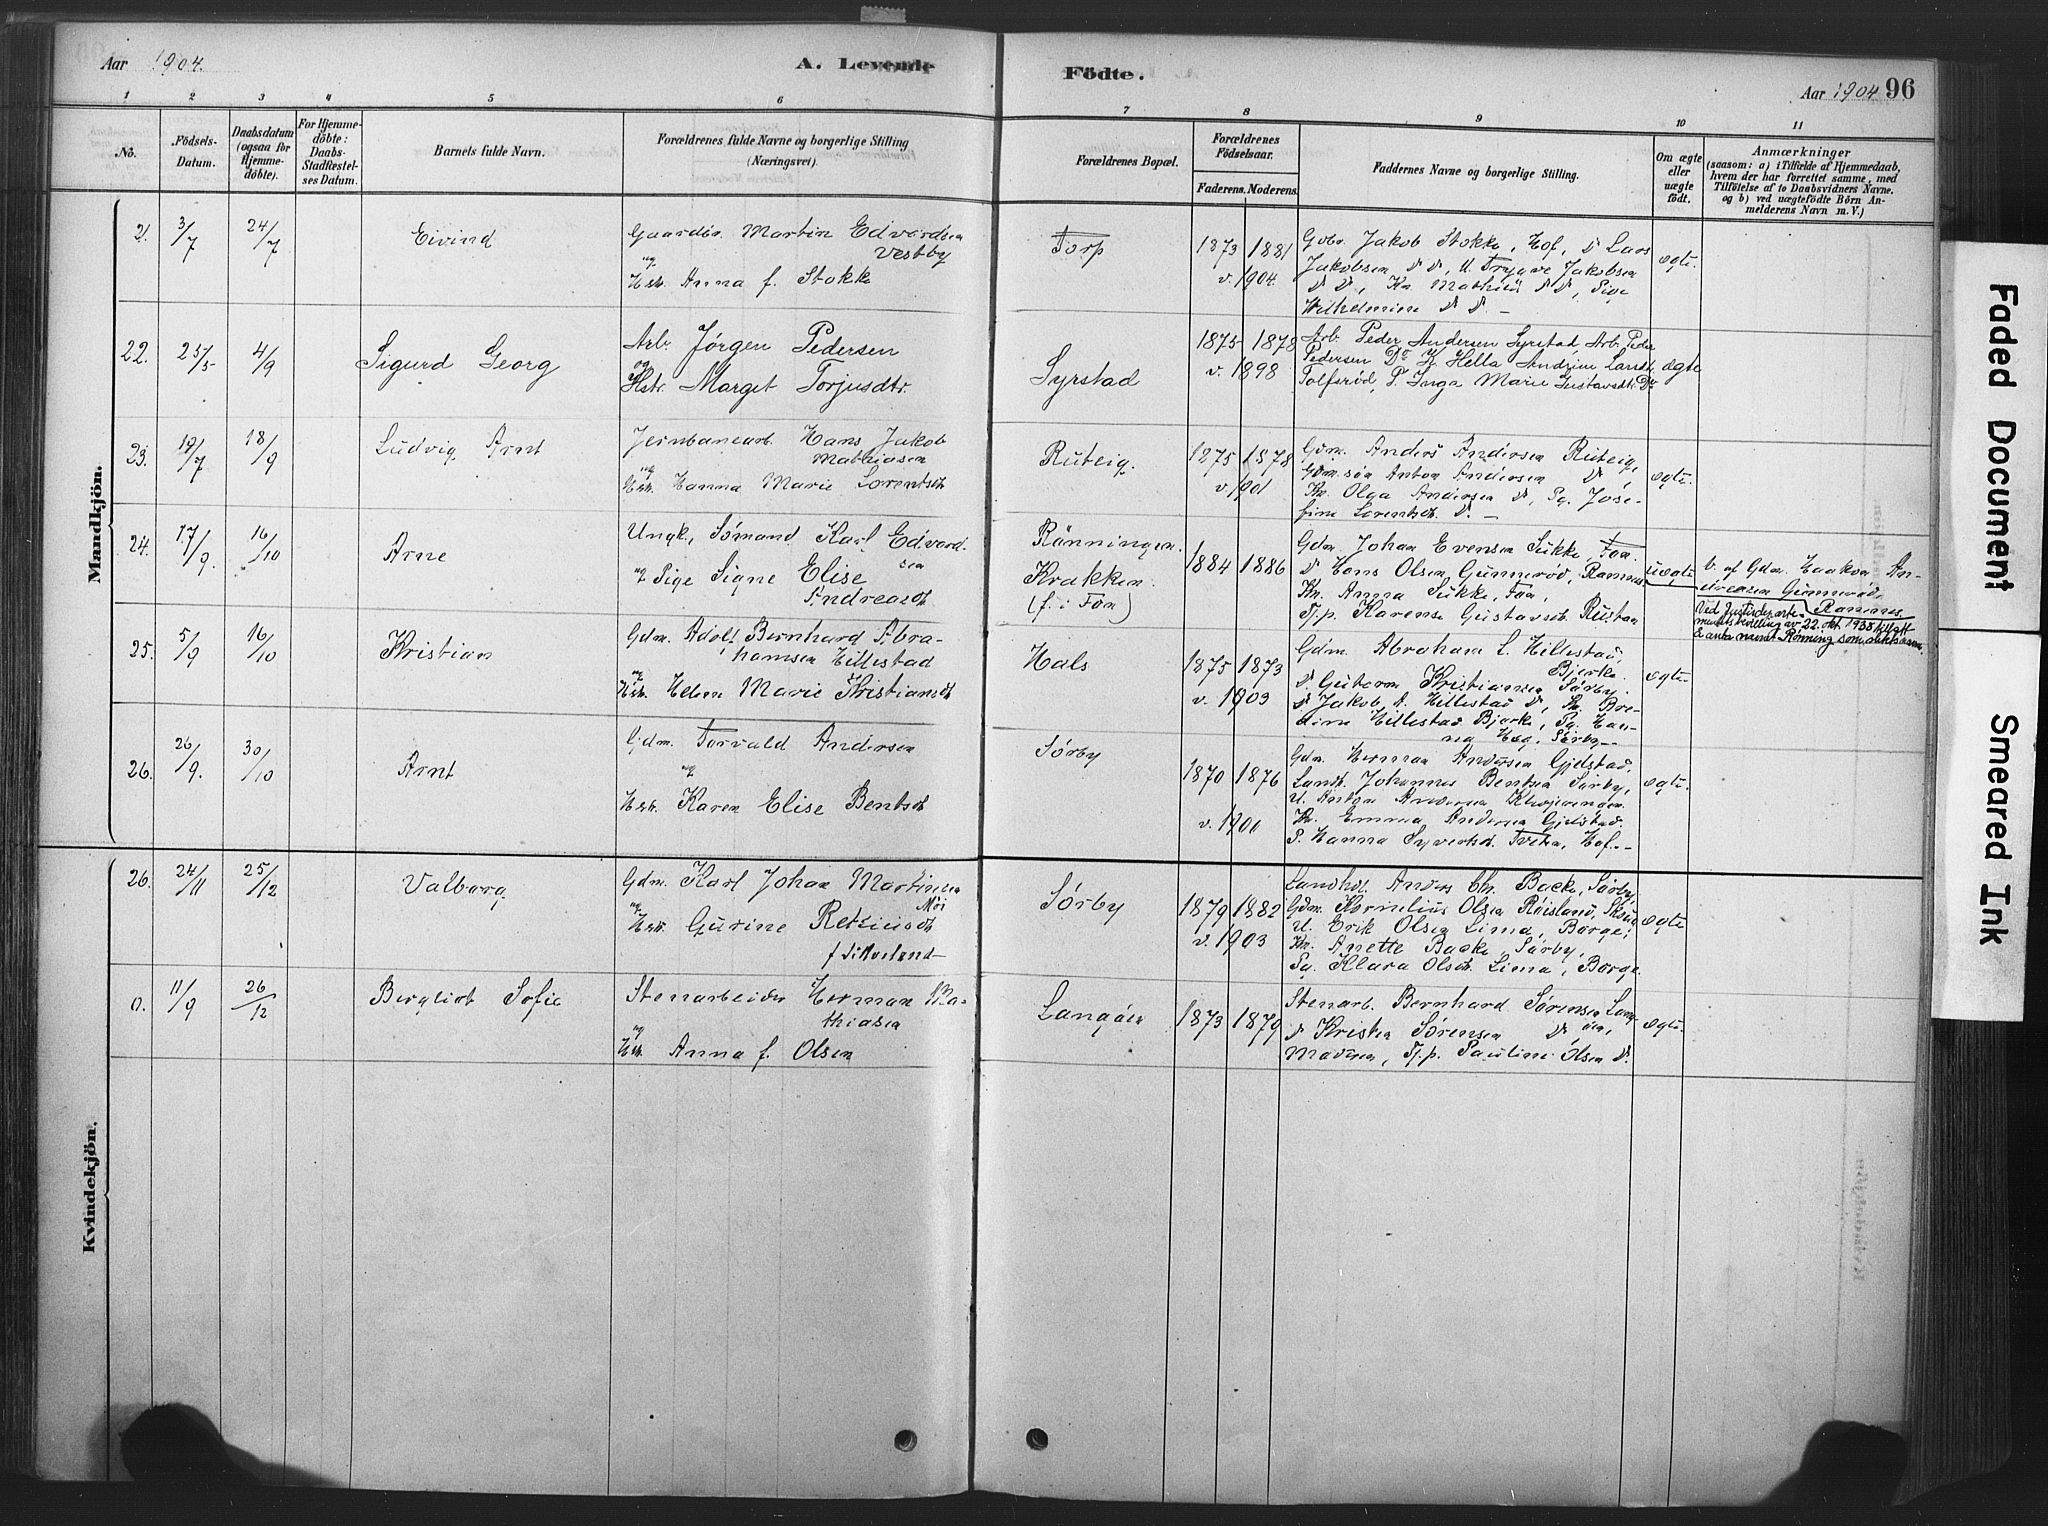 Aar 1904.
A. Levende
Födte.
Aar 1904 96
1 2 3 4 5 6 7 8 9 10 11
No.
Födsels-
Datum.
Daabsdatum
(ogsaa for
Hjemme-
döbte).
For Hjemme-
döbte:
Daabs-
Stadfæstel-
ses Datum.
Barnets fulde Navn.
Forældrenes fulde Navne og borgerlige Stilling
(Næringsvei).
Forældrenes Bopæl.
Forældrenes
Födselsaar.
Faderens. Moderens.
Faddernes Navne og borgerlige Stilling.
Om ægte
eller
uægte
födt.
Anmærkninger
(saasom: a) i Tilfælde af Hjemmedaab,
hvem der har forrettet samme, med
Tilföielse af to Daabsvidners Navne.
og b) ved uægtefödte Börn An-
melderens Navn m. V.)
Mandkjön.
21. 3/7 24/7 Eivind
Gaardbr. Martin Edvardsen
Vestby
og
Hstr. Anna f. Stokke
Torp
1873 1881
v. 1904.
Gbr. Jakob Stokke, Hof, D Lars
Jakobsen D D, U. Trygve Jakobsen
D D, Kn Mathild D D, Pige
Wilhelmine D D. –
ægte
22. 25/5 4/9 Sigurd Georg
Arb. Jørgen Pedersen
og
Hstr. Marget Torjusdtr.
Syrstad
1875 1878
v. 1898
Arb. Peder Andersen Syrstad, Arb. Peder
Pedersen Do K Hella Andrine Landt
Tolfsrød, P. Inga Marie Gustavsdtr. Do
ægte
23. 19/7 18/9 Ludvig Arnt
Jernbanearb. Hans Jakob
Mathiasen
og
Hstr. Hanna Marie Lorentsdt
Ruteig.
1875 1878
v. 1901
Gdm. Anders Andersen Ruteig,
Gdm.søn Anton Andersen D,
Kn. Olga Andersen D, Pg. Jose-
fine Lorentsdt. D. –
ægte
24. 17/9. 16/10 Arne
Ungk., Sømand Karl Edvard-
sen
og Pige Signe Elise
Andreasdt
Rønningen.
Krakken.
(f. i Fon)
1884 1886
Gdm. Johan Evensen Sukke, Fon,
D Hans Olsen Gunnerød, Ramnes
Kn. Anna Sukke, Fon,
Tj.p. Karense Gustavsdt Rustan
uægte
b. af Gdm. Haakon An-
dreasen Gunnerød,
Ramnes
Ved Justisdeparte-
ments bevilling av 22. okt. 1938 tillatt
å anta navnet Rønning som slektsnavn.
25. 5/9 16/10 Kristian
Gdm. Adolf Bernhard Abra-
hamsen Hillestad
og
Hstr. Helene Marie Kristiansdt
Hals
1875 1873
v. 1903
Gdm. Abraham L. Hillestad,
Bjerke.
D. Gutorm Kristiansen Sørby.
D Jakob A. Hillestad D, Kn. Bre-
dine Hillestad Bjerke, Pg. Han-
na Hag. Sørby. –
ægte
26. 26/9. 30/10 Arnt
Gdm. Torvald Andersen
og
Hstr. Karen Elise Bentsdt
Sørby
1870 1876
v. 1900
Gdm. Herman Andersen Gjelstad,
Landh. Johannes Bentsen Sørby,
U. Anton Andersen
Kn. Emma Andersen Gjelstad.
P. Hanna Syvertsdt. Tveten, Hof. –
ægte.
Kvindekjön.
26. 24/11 25/12 Valborg
Gdm. Karl Johan Martinsen
Møi
og
Hstr. Gurine Retsiusdt
Sørby
1879 1882
v. 1903
Landhdl. Anders Chr. Backe, Sørby,
Gdm. Kornelius Olsen Røisland,
U. Erik Olsen Lima, Borge,
Kn. Anette Backe, Sørby,
Pg. Klara Olsdt. Lima, Borge.
ægte
0. 11/9 26/12 Bergliot Sofie
Stenarbeider Herman Ma-
thiasen
og
Hstr. Anna f. Olsen
Langøen
1873 1879
Stenarb. Bernhard Sørensen Lang-
øen,
D Kristen Sørensen D,
Madsen, Tj.p. Pauline Olsen D.
ægte.
Faded Document
Smeared Ink